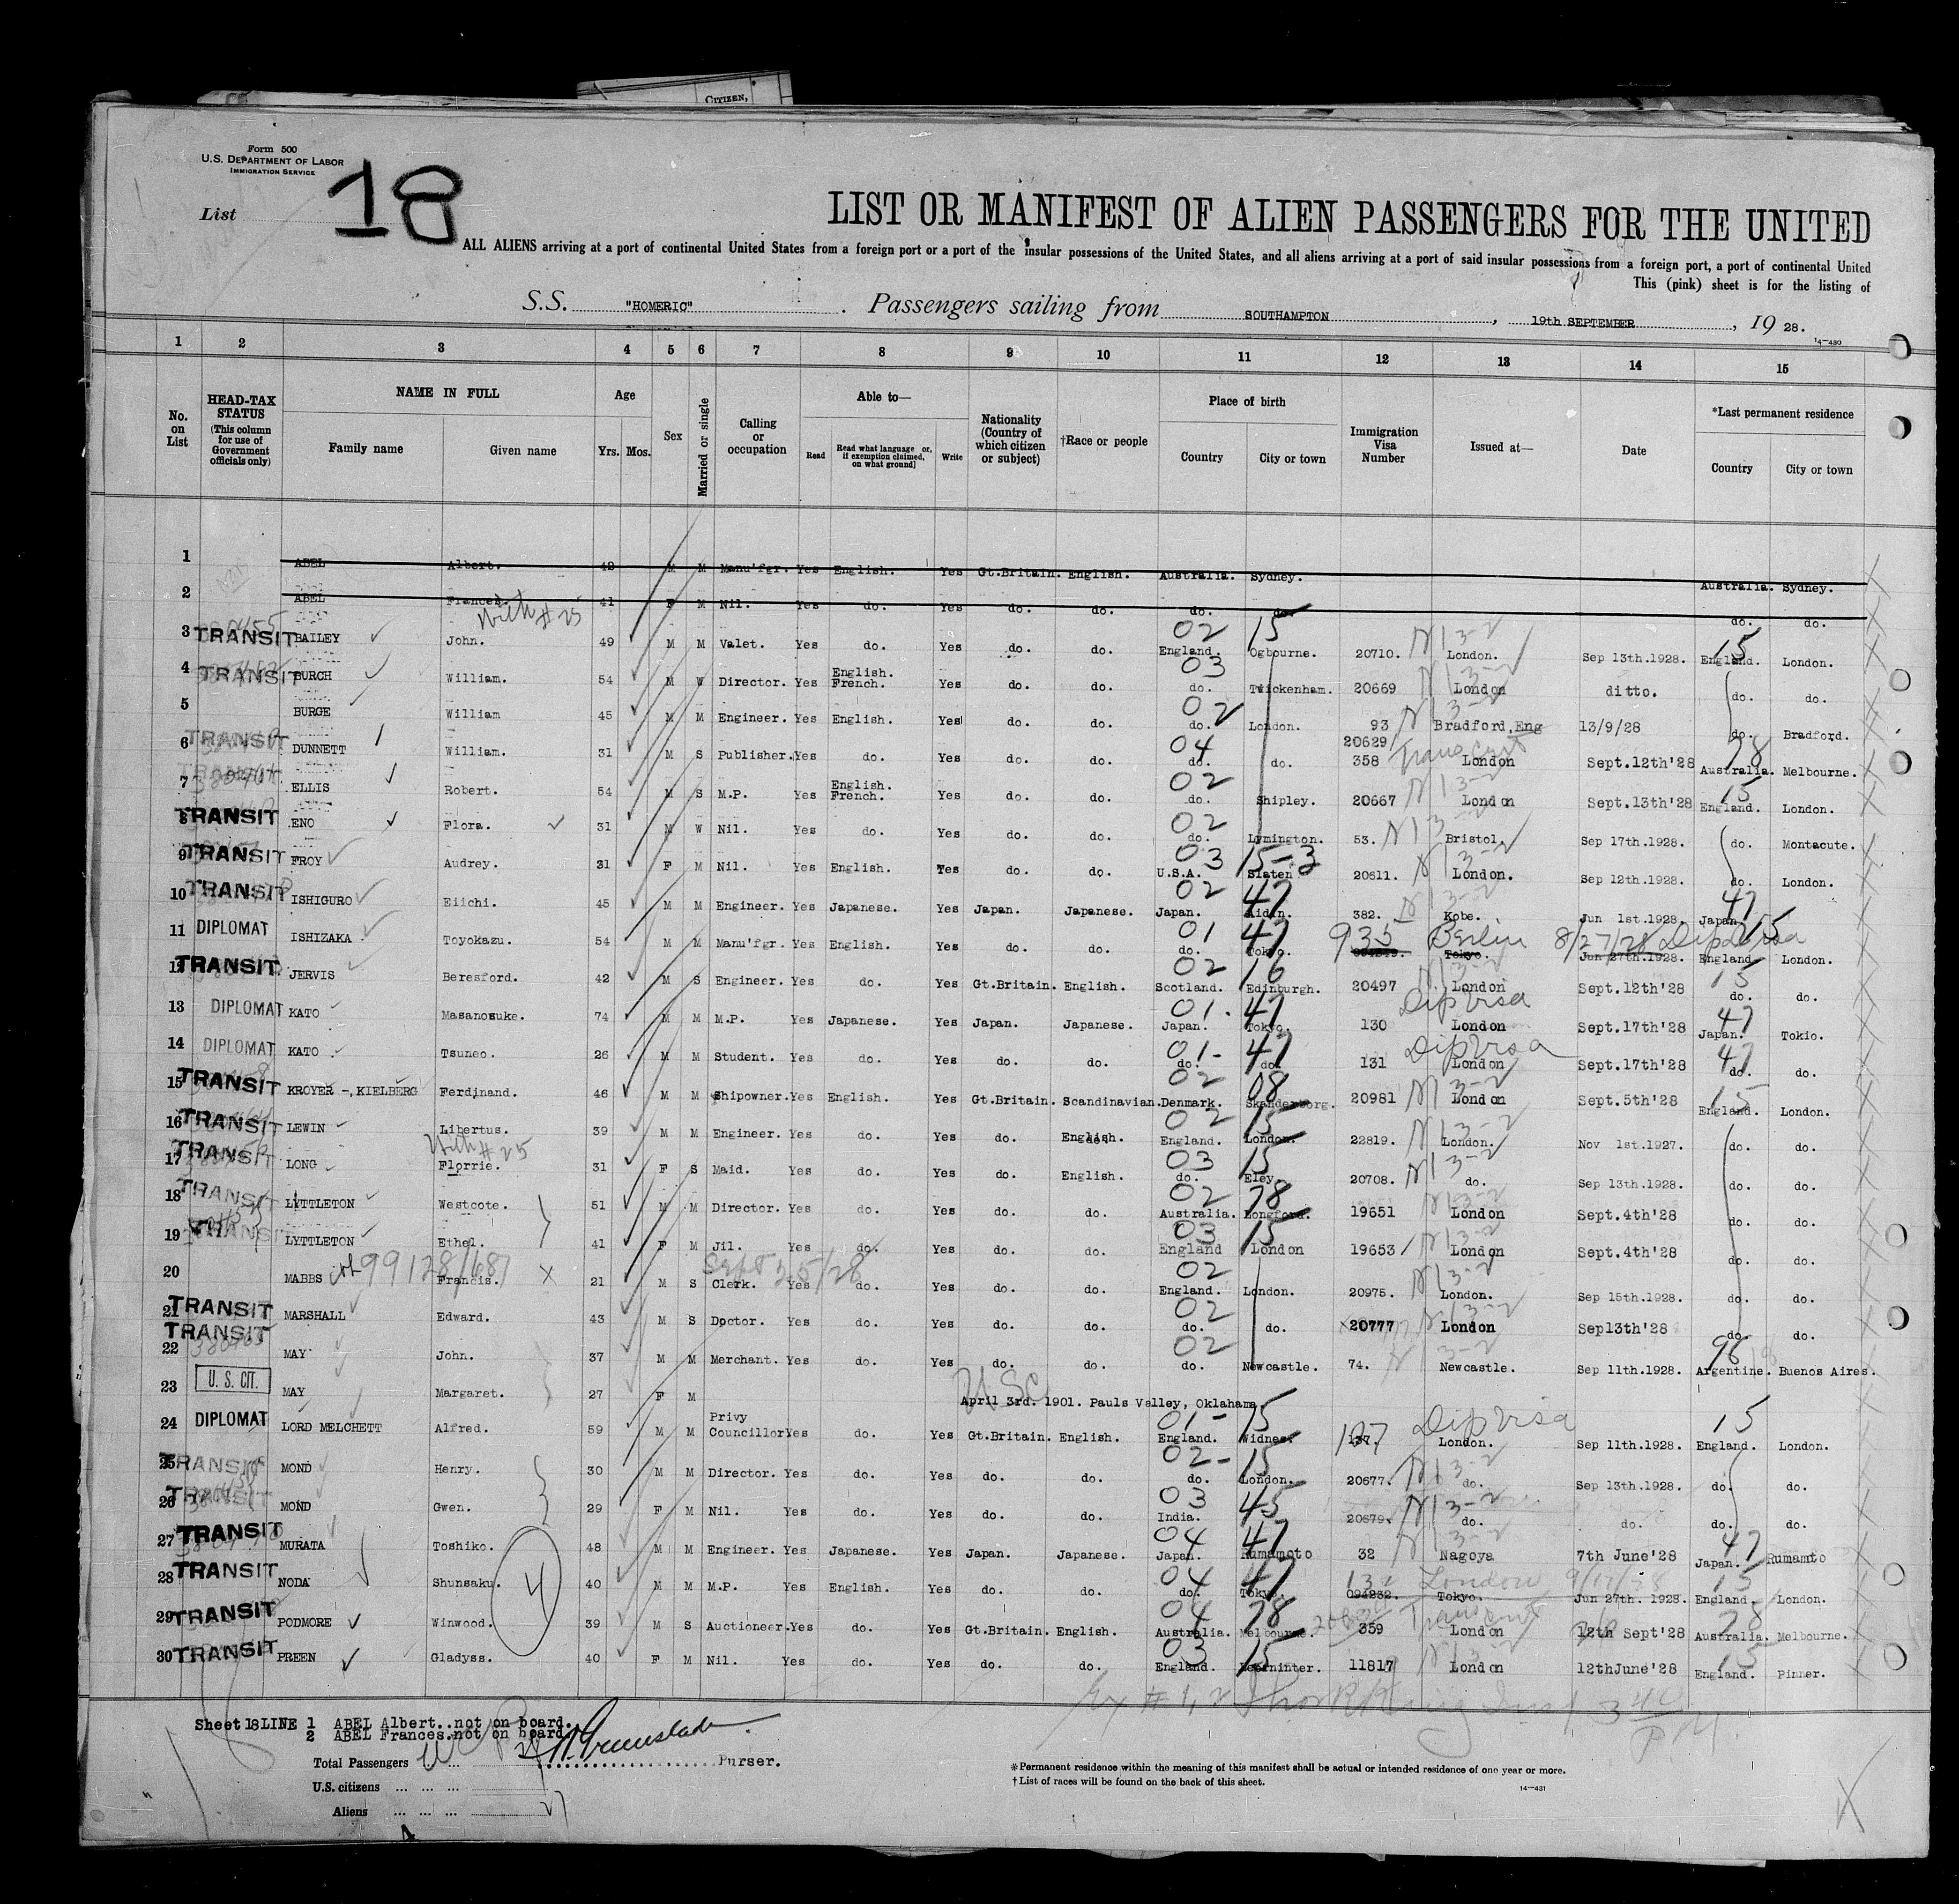 CITIZEN,
Form 500
U.S. DEPARTMENT OF LABOR
IMMIGRATION SERVICE
List 18
LIST OR MANIFEST OF ALIEN PASSENGERS FOR THE UNITED
ALL ALIENS arriving at a port of continental United States from a foreign port or a port of the insular possessions of the United States, and all aliens arriving at a port of said insular possessions from a foreign port, a port of continental United
This (pink) sheet is for the listing of
S.S. "HOMERIC" . Passengers sailing from SOUTHAMPTON , 19th SEPTEMBER , 19 28.
14—430
1 2 3 4 5 6 7 8 9 10 11 12 13 14 15
No. on List
HEAD-TAX STATUS (This column for use of Government officials only)
NAME IN FULL Family name Given name
Age Yrs. Mos.
Sex
Married or single
Calling or occupation
Able to— Read Read what language or, if exemption claimed, on what ground] Write
Nationality (Country of which citizen or subject)
†Race or people
Place of birth Country City or town
Immigration Visa Number
Issued at—
Date
*Last permanent residence Country City or town
1 ABEL Albert. 42 M M Manu'fgr. Yes English. Yes Gt.Britain. English. Australia. Sydney. Australia. Sydney.
2 ABEL Frances. 41 F M Nil. Yes do. Yes do. do. do. do. do. do.
With #25
3 TRANSIT BAILEY John. 49 M M Valet. Yes do. Yes do. do. 02 England. 15 Ogbourne. 20710. N 13-2 London. Sep 13th.1928. 15 England. London.
4 TRANSIT BURCH William. 54 M W Director. Yes English. French. Yes do. do. 03 do. Twickenham. 20669 N 13-2 London ditto. do. do.
5 BURGE William 45 M M Engineer. Yes English. Yes do. do. 02 do. London. 93 N 13-2 Bradford,Eng 13/9/28 do. Bradford.
6 TRANSIT DUNNETT William. 31 M S Publisher. Yes do. Yes do. do. 04 do. do. 20629 358 London Sept.12th'28 78 Australia. Melbourne.
7 TRANSIT ELLIS Robert. 54 M S M.P. Yes English. French. Yes do. do. 02 do. Shipley. 20667 N 13-2 London Sept.13th'28 15 England. London.
8 TRANSIT ENO Flora. 31 M W Nil. Yes do. Yes do. do. 02 do. Lymington. 53. N 13-2 Bristol. Sep 17th.1928. do. Montacute.
9 TRANSIT FROY Audrey. 31 F M Nil. Yes English. Yes do. do. 03 U.S.A. 15-3 Slaten 20611. N 13-2 London. Sep 12th.1928. do. London.
10 TRANSIT ISHIGURO Eiichi. 45 M M Engineer. Yes Japanese. Yes Japan. Japanese. 02 Japan. 47 382. N 13-2 Kobe. Jun 1st.1928. 47 Japan.
11 DIPLOMAT ISHIZAKA Toyokazu. 54 M M Manu'fgr. Yes English. Yes do. do. 01 do. 47 Tokyo. 935 Berlin Tokyo. 8/27/28 Dip Visa Jun 27th.1928. 15 England London.
12 TRANSIT JERVIS Beresford. 42 M S Engineer. Yes do. Yes Gt.Britain. English. 02 Scotland. 16 Edinburgh. 20497 N 13-2 London Sept.12th'28 15 do. do.
13 DIPLOMAT KATO Masanosuke. 74 M M M.P. Yes Japanese. Yes Japan. Japanese. 01. Japan. 47 Tokyo. 130 Dip Visa London Sept.17th'28 47 Japan. Tokio.
14 DIPLOMAT KATO Tsuneo. 26 M M Student. Yes do. Yes do. do. 01- do. 47 do. 131 Dip Visa London Sept.17th'28 47 do. do.
15 TRANSIT KROYER -,KIELBERG Ferdinand. 46 M M Shipowner. Yes English. Yes Gt.Britain. Scandinavian. 02 Denmark. 08 Skanderborg. 20981 N 13-2 London Sept.5th'28 15 England. London.
16 TRANSIT LEWIN Libertus. 39 M M Engineer. Yes do. Yes do. English. 02 England. 15 London. 22819. N 13-2 London. Nov 1st.1927. do. do.
With #25
17 TRANSIT LONG Florrie. 31 F S Maid. Yes do. Yes do. English. 03 do. 15 Eley. 20708. N 13-2 do. Sep 13th.1928. do. do.
18 TRANSIT LYTTLETON Westcote. 51 M M Director. Yes do. Yes do. do. 02 Australia. 78 Longford. 19651 N 13-2 London Sept.4th'28 do. do.
19 TRANSIT LYTTLETON Ethel. 41 F M Jil. Yes do. Yes do. do. 03 England 15 London 19653 N 13-2 London Sept.4th'28 do. do.
20 MABBS 99128/68 Francis. X 21 M S Sept 25/28 Clerk. Yes do. Yes do. do. 02 England. London. 20975. N 13-2 London. Sep 15th.1928. do. do.
21 TRANSIT MARSHALL Edward. 43 M S Doctor. Yes do. Yes do. do. 02 do. do. 20777 N 13-2 London Sep13th'28 do. do.
22 TRANSIT MAY John. 37 M M Merchant. Yes do. Yes do. do. 02 do. Newcastle. 74. N 13-2 Newcastle. Sep 11th.1928. 98 Argentine. Buenos Aires.
23 U. S. CIT. MAY Margaret. 27 F M USC April 3rd. 1901. Pauls Valley, Oklahama.
24 DIPLOMAT LORD MELCHETT Alfred. 59 M M Privy Councillor Yes do. Yes Gt.Britain. English. 01- England. 15 Widnes. 137 Dip Visa London. Sep 11th.1928. 15 England. London.
25 TRANSIT MOND Henry. 30 M M Director. Yes do. Yes do. do. 02- do. 15 London. 20677. N 13-2 do. Sep 13th.1928. do. do.
26 TRANSIT MOND Gwen. 29 F M Nil. Yes do. Yes do. do. 03 India. 45 20679. N 13-2 do. do. do. do.
27 TRANSIT MURATA Toshiko. 48 M M Engineer. Yes Japanese. Yes Japan. Japanese. 04 Japan. 47 Kumamoto 32 N 13-2 Nagoya 7th June'28 47 Japan. Kumamto
28 TRANSIT NODA Shunsaku. 4 40 M M M.P. Yes English. Yes do. do. 04 do. 47 Tokyo. 132 094232. London Tokyo. 9/17/28 Jun 27th. 1928. 15 England. London.
29 TRANSIT PODMORE Winwood. 39 M S Auctioneer. Yes do. Yes Gt.Britain. English. 04 Australia. 78 Melbourne. 359 London 12th Sept'28 78 Australia. Melbourne.
30 TRANSIT PREEN Gladyss. 40 F M Nil. Yes do. Yes do. do. 03 England. 15 11817 N 13-2 London 12thJune'28 15 England. Pinner.
Sheet 18 LINE 1 ABEL Albert..not on board.
2 ABEL Frances.not on board.
Total Passengers ... ... Purser.
U.S. citizens ... ... ...
Aliens ... ... ...
*Permanent residence within the meaning of this manifest shall be actual or intended residence of one year or more.
†List of races will be found on the back of this sheet.
14—431